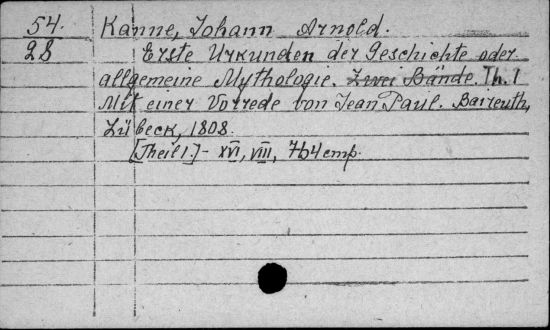 54. Kanne, Johann Arnold.
28 Erste Urkunden der Geschichte oder
allgemeine Mythologie. Zwei Bände. Th. 1
Mit einer Vorrede von Jean Paul. Baireuth,
Lübeck, 1808.
[Theil 1.] - XVI, VIII, 764 cmp.